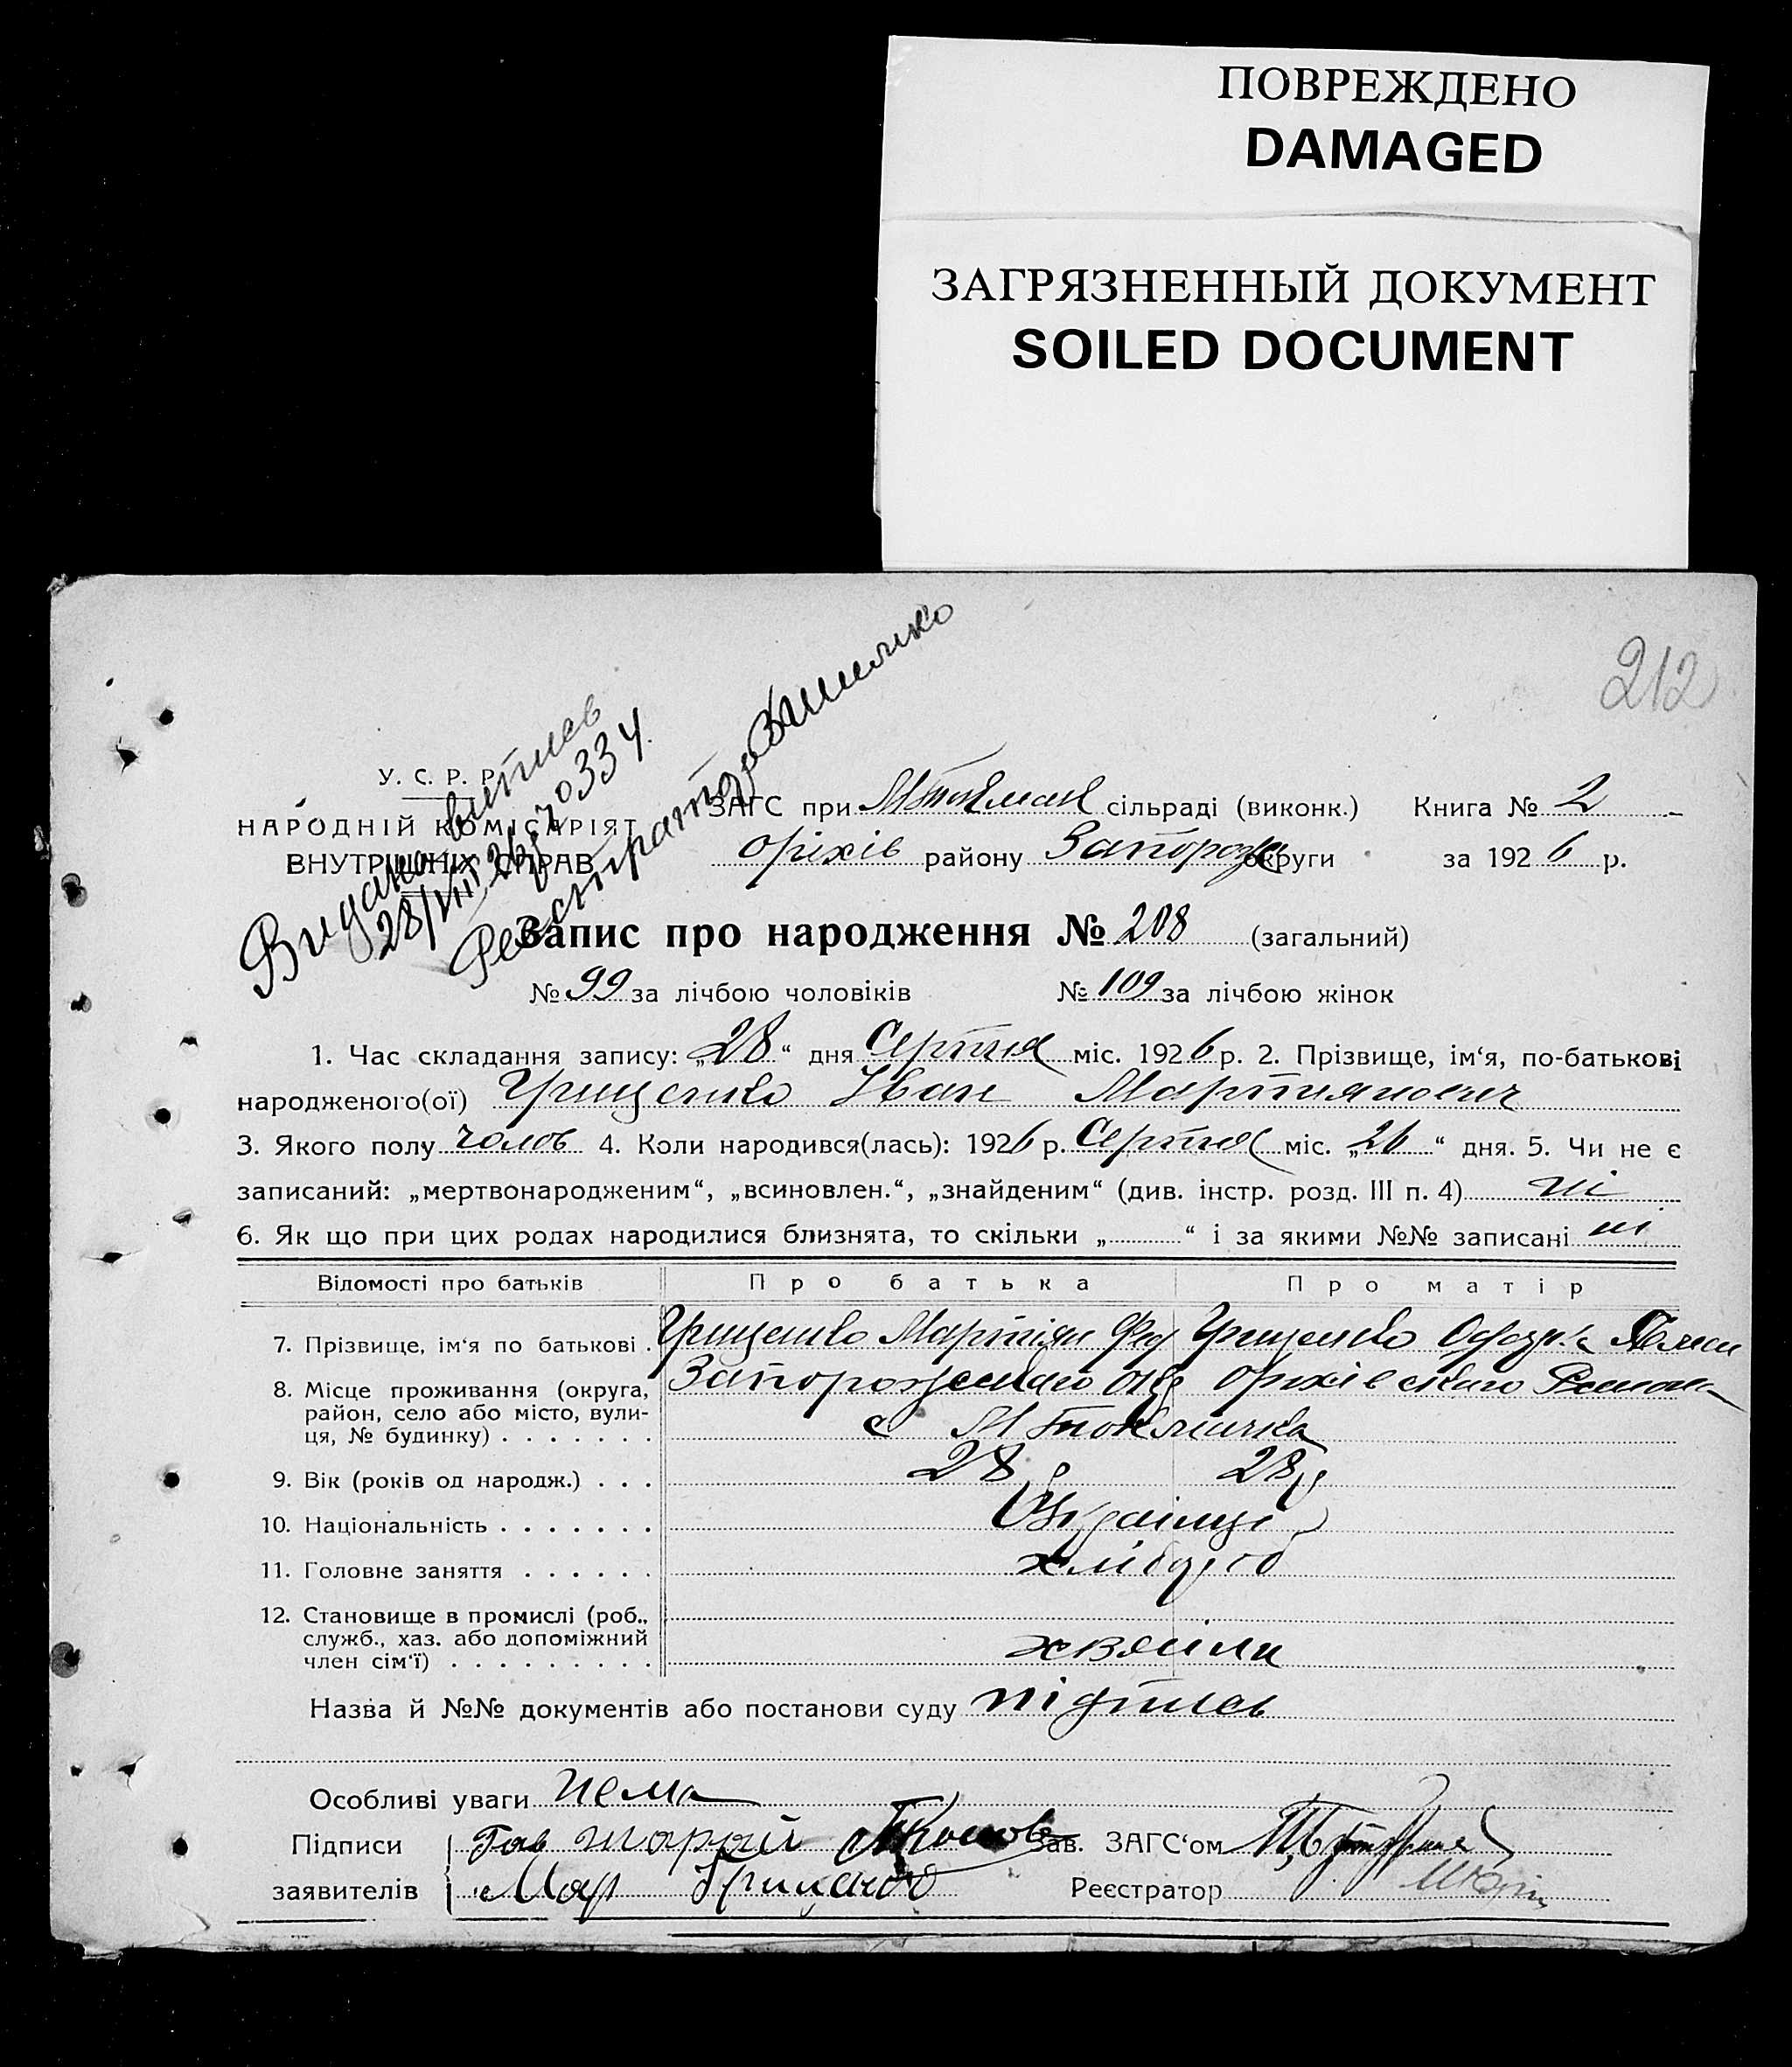 ПОВРЕЖДЕНО
DAMAGED
ЗАГРЯЗНЕННЫЙ ДОКУМЕНТ
SOILED DOCUMENT
212
Видана витпись
28/VIII 26
Реєстратор
У. С. Р. Р.
НАРОДНІЙ КОМІСАРІЯТ
ВНУТРІШНІХ СПРАВ
ЗАГС при сільраді (виконк.) Книга № 2
Оріхів району Запорозьк округи за 1926 р.
Запис про народження № 208 (загальний)
№ 99 за лічбою чоловіків № 109 за лічбою жінок
1. Час складання запису: „28“ дня Серпня міс. 1926 р. 2. Прізвище, ім‘я, по-батькові
народженого(ої) Грищенко Іван Мартиянович
3. Якого полу чолов 4. Коли народився(лась): 1926 р. Серпня міс. „26“ дня. 5. Чи не є
записаний: „мертвонародженим“, „всиновлен.“, „знайденим“ (див. інстр. розд. III п. 4) ні
6. Як що при цих родах народилися близнята, то скільки „ “ і за якими №№ записані ні
Відомості про батьків Про батька Про матір
7. Прізвище, ім‘я по батькові . Грищенко Мартіян Фед Грищенко
8. Місце проживання (округа, Запорозького Окр Оріхівського
район, село або місто, вули-
ця, № будинку) . . . . . . . с М Токмачка
9. Вік (років од народж.) . . . 28 р 28 р
10. Національність . . . . . . . Українці
11. Головне заняття . . . . . . хлібороб
12. Становище в промислі (роб.,
служб., хаз. або допоміжний
член сім‘ї) . . . . . . . . .
Назва й №№ документів або постанови суду підпись
Особливі уваги нема
Підписи Зав. ЗАГС‘ом
заявителів Мар Грищенко Реєстратор